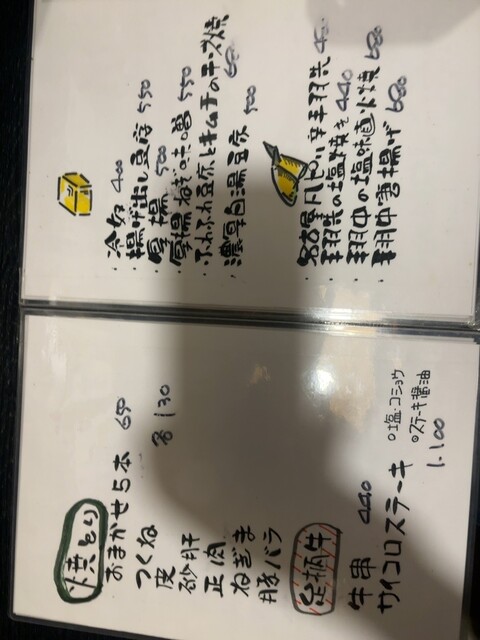 ・冷奴 400
・揚げ出し豆腐 550
・厚揚 500
・厚揚ねぎ味噌 550
・ふわふわ豆腐とキムチのチーズ焼 680
・濃厚白湯豆腐 500
・名古屋風ピリ辛手羽先 450
・手羽先の塩焼き 440
・手羽中の塩味直火焼 680
・手羽中唐揚げ 680
焼とり
おまかせ5本 650
つくね 各130
皮
砂肝
正肉
ねぎま
豚バラ
足柄牛
牛串 440
サイコロステーキ ○塩・コショウ
○ステーキ醤油
1.100